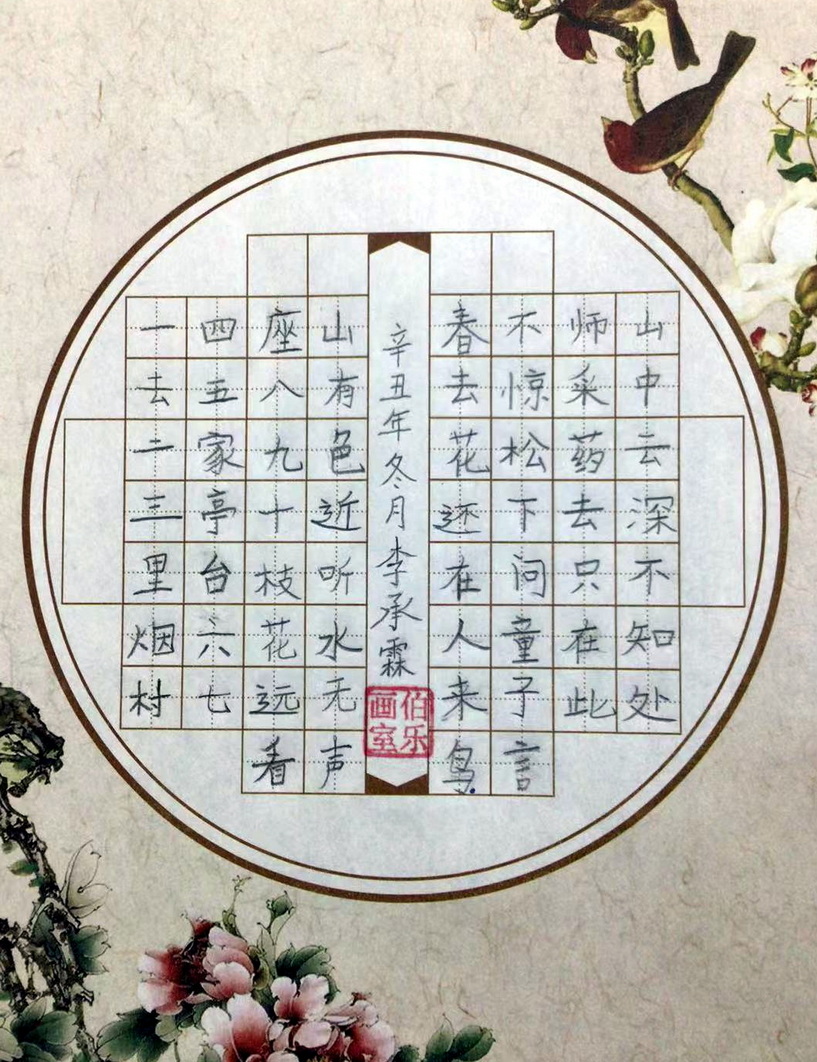 一去二三里烟村
四五家亭台六七
座八九十枝花远看
山有色近听水无声
辛丑年冬月李承霖
伯乐画室
春去花还在人来鸟
不惊松下问童子言
师采药去只在此
山中云深不知处